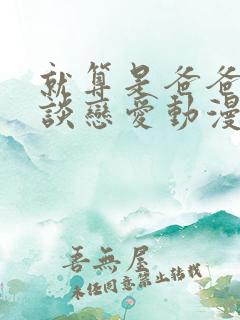 就算是爸爸
談戀愛動漫
吾無屋
未任同意禁止转载